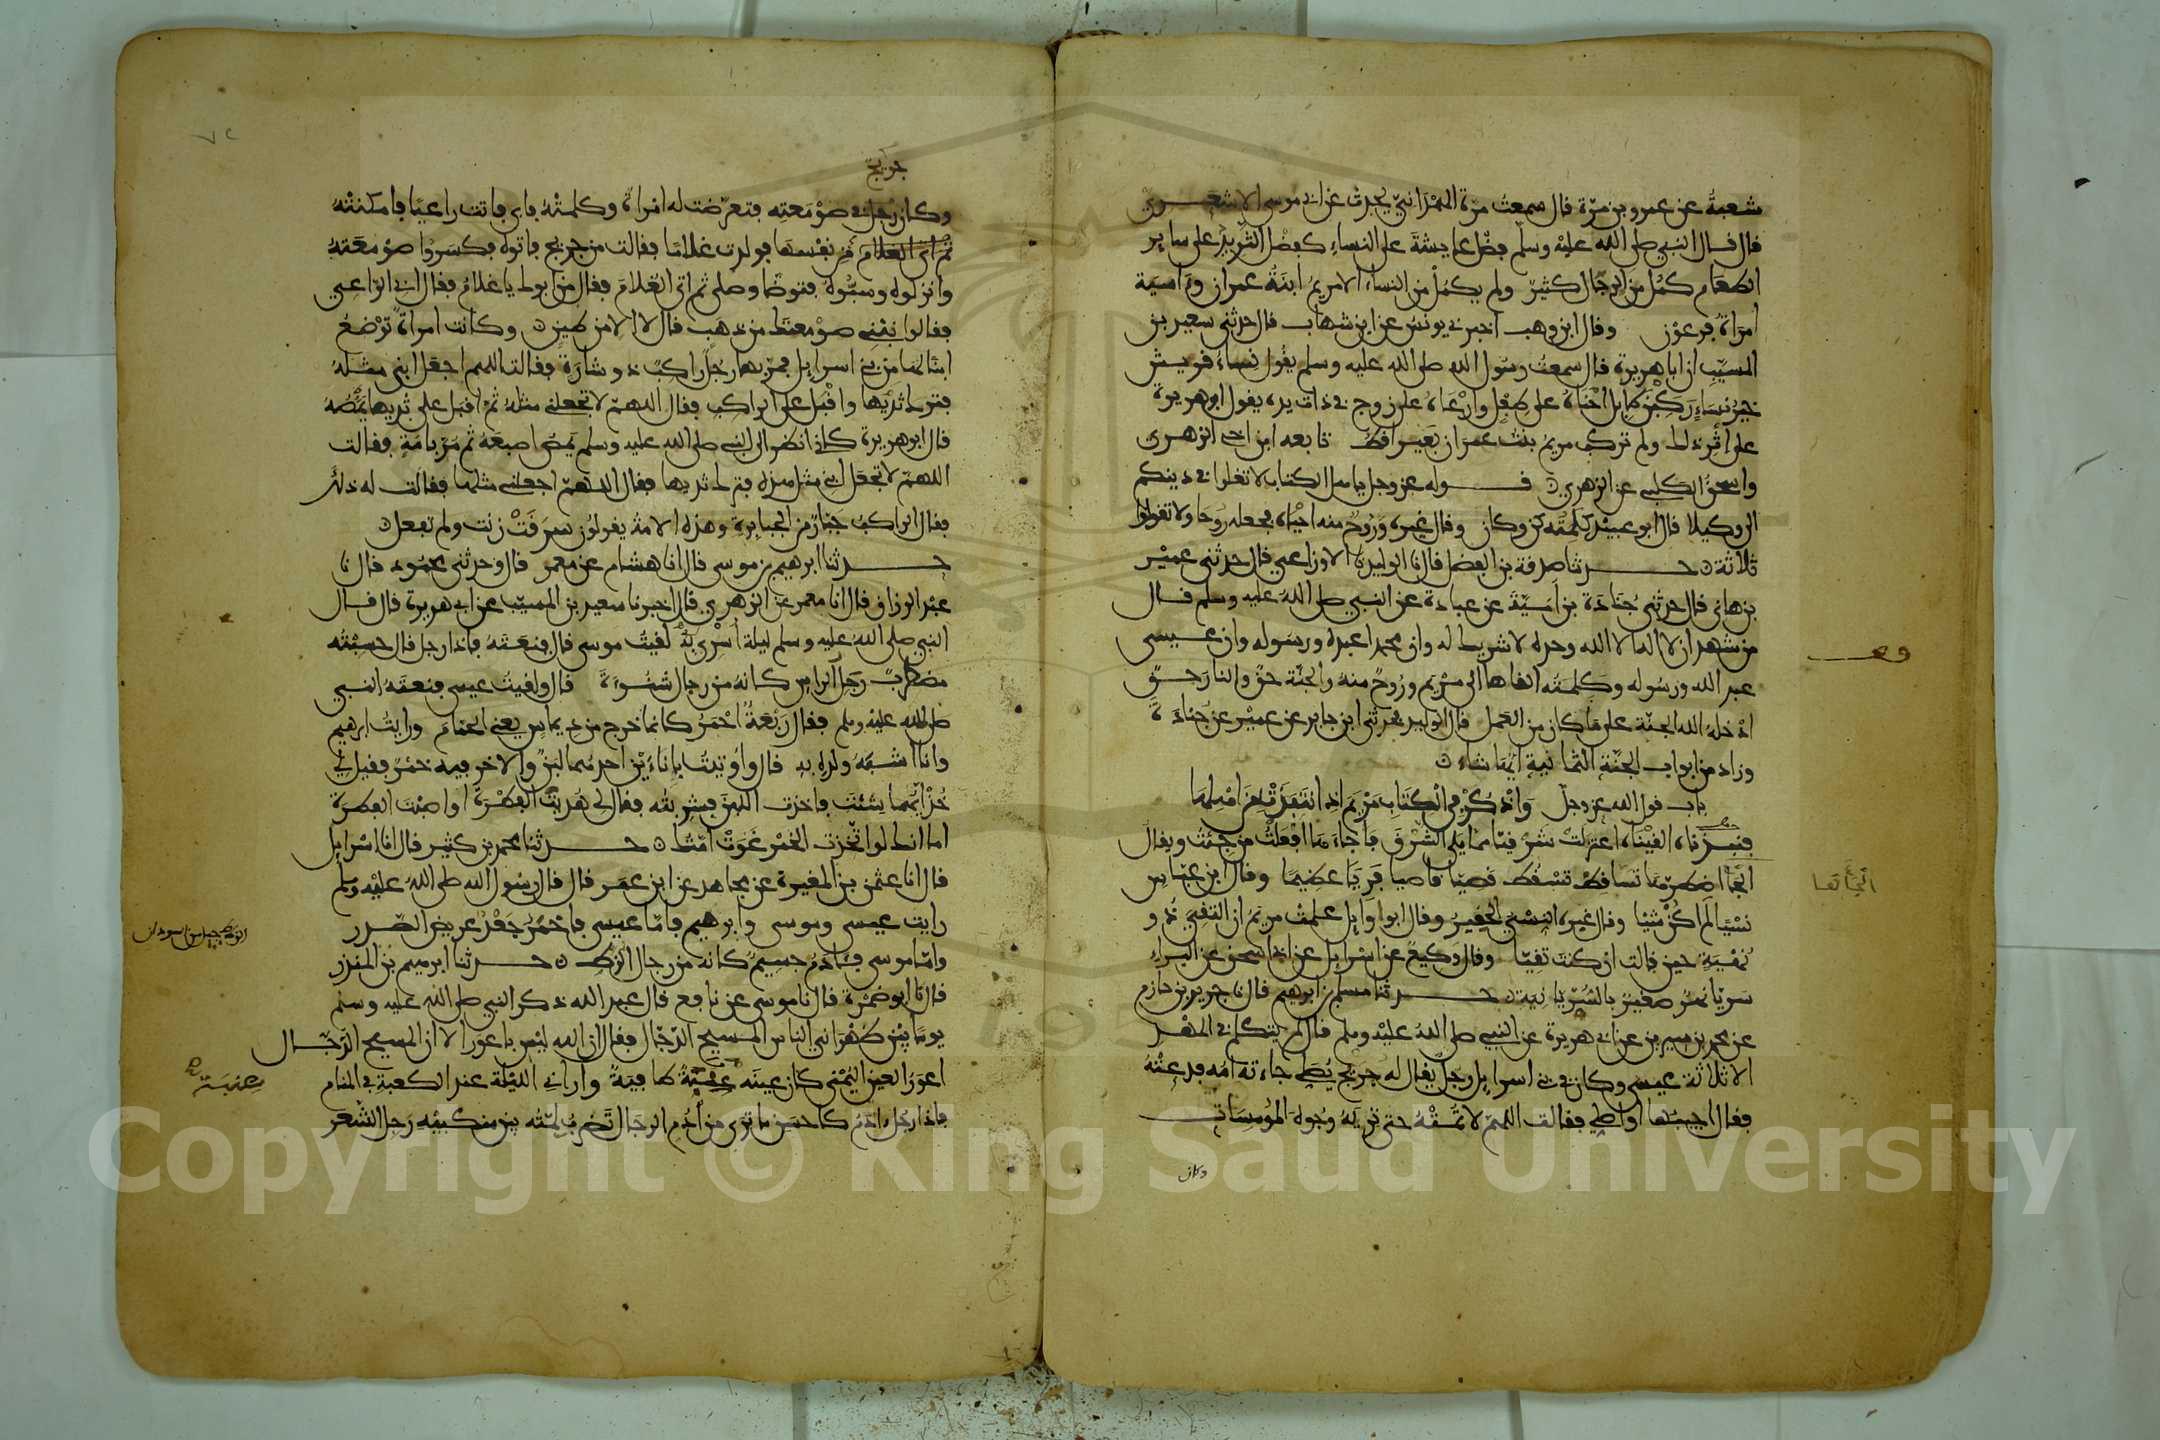 شعبة عن عمرو بن مرة قال سمعت مرة الهمداني يحدث عن ابي موسى الاشعري
قال قال النبي صلى الله عليه وسلم فضل عايشة على النساء كفضل الثريد على ساير
الطعام كمل من الرجال كثير ولم يكمل من النساء الا مريم ابنة عمران وءاسية
امراة فرعون وقال ابن وهب اخبرني يونس عن ابن شهاب قال حدثني سعيد بن
المسيب ان ابا هريرة قال سمعت رسول الله صلى الله عليه وسلم يقول نساء قريش
خير نساء ركبن الابل احناه على طفل وارعاه على زوج في ذات يده يقول ابو هريرة
على اثر ذلك ولم تركب مريم بنت عمران بعيرا قط تابعه ابن اخي الزهري
واسحق الكلبي عن الزهري قوله عز وجل يا اهل الكتاب لا تغلوا في دينكم
الى وكيلا قال ابو عبيد كلمته كن وكان وقال غيره وروح منه احياه فجعله روحا ولا تقولوا
ثلاثة حدثنا صدقة بن الفضل قال نا الوليد نا الاوزاعي قال حدثني عمير
بن هاني قال حدثني جنادة بن ابي امية عن عبادة عن النبي صلى الله عليه وسلم قال
من شهد ان لا اله الا الله وحده لا شريك له وان محمدا عبده ورسوله وان عيسى
عبد الله ورسوله وكلمته القاها الى مريم وروح منه والجنة حق والنار حق
ادخله الله الجنة على ما كان من العمل قال الوليد فحدثني ابن جابر عن عمير عن جنادة
وزاد من ابواب الجنة الثمانية ايها شاء
باب قول الله عز وجل واذكر في الكتاب مريم اذ انتبذت من اهلها
فنبذناه القيناه اعتزلت شرقيا مما يلي الشرق فاجاءها افعلت من جئت ويقال
الجاها اضطرها تساقط تسقط قصيا قاصيا فريا عظيما وقال ابن عباس
نسيا لم اكن شيا وقال غيره النسي الحقير وقال ابو وايل علمت مريم ان التقي ذو
نهية حين قالت ان كنت تقيا وقال وكيع عن اسرايل عن ابي اسحق عن البراء
سريا نهر صغير بالسريانية حدثنا مسلم بن ابرهيم قال نا جرير بن حازم
عن محمد بن سيرين عن ابي هريرة عن النبي صلى الله عليه وسلم قال لم يتكلم في المهد
الا ثلاثة عيسى وكان في بني اسرايل رجل يقال له جريج يصلي جاءته امه فدعته
فقال اجيبها او اصلي فقالت اللهم لا تمته حتى تريه وجوه المومسات
وكان
جريج
وكان في صومعته فتعرضت له امراة وكلمته فابى فاتت راعيا فامكنته
من نفسها فولدت غلاما فقالت من جريج فاتوه فكسروا صومعته
وانزلوه وسبوه فتوضا وصلى ثم اتى الغلام فقال من ابوك يا غلام فقال الراعي
فقالوا نبني صومعتك من ذهب قال لا الا من طين وكانت امراة ترضع
ابنا لها من بني اسرايل فمر بها رجل راكب ذو شارة فقالت اللهم اجعل ابني مثله
فترك ثديها واقبل على الراكب فقال اللهم لا تجعلني مثله ثم اقبل على ثديها يمصه
قال ابو هريرة كاني انظر الى النبي صلى الله عليه وسلم يمص اصبعه ثم مر بامة فقالت
اللهم لا تجعل ابني مثل هذه فترك ثديها فقال اللهم اجعلني مثلها فقالت له ذلك
فقال الراكب جبار من الجبابرة وهذه الامة يقولون سرقت زنت ولم تفعل
حدثنا ابرهيم بن موسى قال انا هشام عن معمر قال وحدثني محمود قال نا
عبد الرزاق قال انا معمر عن الزهري قال اخبرنا سعيد بن المسيب عن ابي هريرة قال قال
النبي صلى الله عليه وسلم ليلة اسري به لقيت موسى قال فنعته فاذا رجل قال حسبته
مضطرب رجل الراس كانه من رجال شنوءة قال ولقيت عيسى فنعته النبي
صلى الله عليه وسلم فقال ربعة احمر كانما خرج من ديماس يعني الحمام ورايت ابرهيم
وانا اشبه ولده به قال واوتيت باناءين احدهما لبن والاخر فيه خمر فقيل لي
خذ ايهما شئت فاخذت اللبن فشربته فقال لي هديت الفطرة او اصبت الفطرة
اما انك لو اخذت الخمر غوت امتك حدثنا محمد بن كثير قال انا اسرايل
قال انا عثمن بن المغيرة عن مجاهد عن ابن عمر قال قال رسول الله صلى الله عليه وسلم
رايت عيسى وموسى وابرهيم فاما عيسى فاحمر جعد عريض الصدر
واما موسى فئادم جسيم كانه من رجال الزط حدثنا ابرهيم بن المنذر
قال نا ابو ضمرة قال نا موسى عن نافع قال عبد الله ذكر النبي صلى الله عليه وسلم
يوما بين ظهراني الناس المسيح الدجال فقال ان الله ليس باعور الا ان المسيح الدجال
اعور العين اليمنى كان عينه عنبة طافية واراني الليلة عند الكعبة في المنام
فاذا رجل ءادم كاحسن ما ترى من ادم الرجال تضرب لمته بين منكبيه رجل الشعر
Copyright © King Saud University